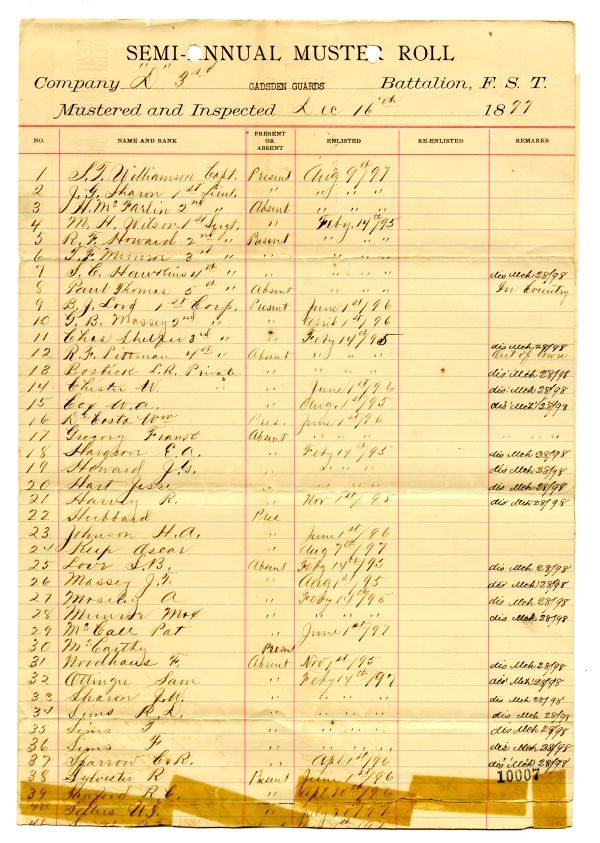 SEMI-ANNUAL MUSTER ROLL
Company "D" 3rd GADSDEN GUARDS Battalion, F. S. T.
Mustered and Inspected Dec 16th 1897
NO. NAME AND RANK PRESENT OR ABSENT ENLISTED RE-ENLISTED REMARKS
1 S.T. Williamson Capt. Present Aug 9th/97
2 J.G. Sharon 1st Lieut. " " " "
3 H. McFarlin 2nd " Absent " " "
4 M. H. Wilson 1st Sergt. " Feby. 14th/95
5 R. F. Howard 2nd " Present " " "
6 T.F. Munroe 3rd " " " " "
7 S. E. Hawkins 4th " " " " " dis Mch 28/98
8 Paul Thomas 5th " Absent " " " In Country
9 B. J. Lord 1st Corp. Present June 1st/96
10 G. B. Massey 2nd " " April 1st/96
11 Chas Shelfer 3rd " " Feby 14th/95 dis Mch 28/98
12 R. F. Pittman 4th " Absent " " " Out of town
13 Bostick L.R. Private " " " " dis Mch 28/98
14 Chester W. " " June 1st/96 dis Mch 28/98
15 Cox W.A. " Aug. 1st/95 dis Mch 28/98
16 DaCosta Wm Pres. June 1st/96
17 Gregory Absent " " " " " "
18 E.A. " Feby 14th/95 dis Mch 28/98
19 Howard J.G. " " " " dis Mch 28/98
20 Hart Jesse " " " dis Mch 28/98
21 Harvey R. " Nov 1st/95 dis Mch 28/98
22 Hubbard Pres
23 Johnson H.A. " June 1st/96
24 Keep Oscar " Aug 7th/97
25 Love S.B. Absent Feby 14th/95 dis Mch 28/98
26 Massey J.T. " Aug 1st/95 dis Mch 28/98
27 Moseley A " Feby 14th/95 dis Mch 28/98
28 Munroe Max " " " " dis Mch 28/98
29 McCall Pat " June 1st/97
30 McCarthy Present
31 Woodhaus F. Absent Nov 1st/95 dis Mch 28/98
32 Sam " Feby 14th/97 dis Mch 28/98
33 Sharon J.W. " " " " dis Mch 28/98
34 Sims R.L. " " " " dis Mch 28/98
35 Sims T " " " " dis Mch 28/98
36 Sims F " " " " dis Mch 28/98
37 Sparrow C.R. " Apl 1st/96 dis Mch 28/98
38 Sylvester R Present June 1st/96 10007
39 R.C. " Apl 10th/96
40